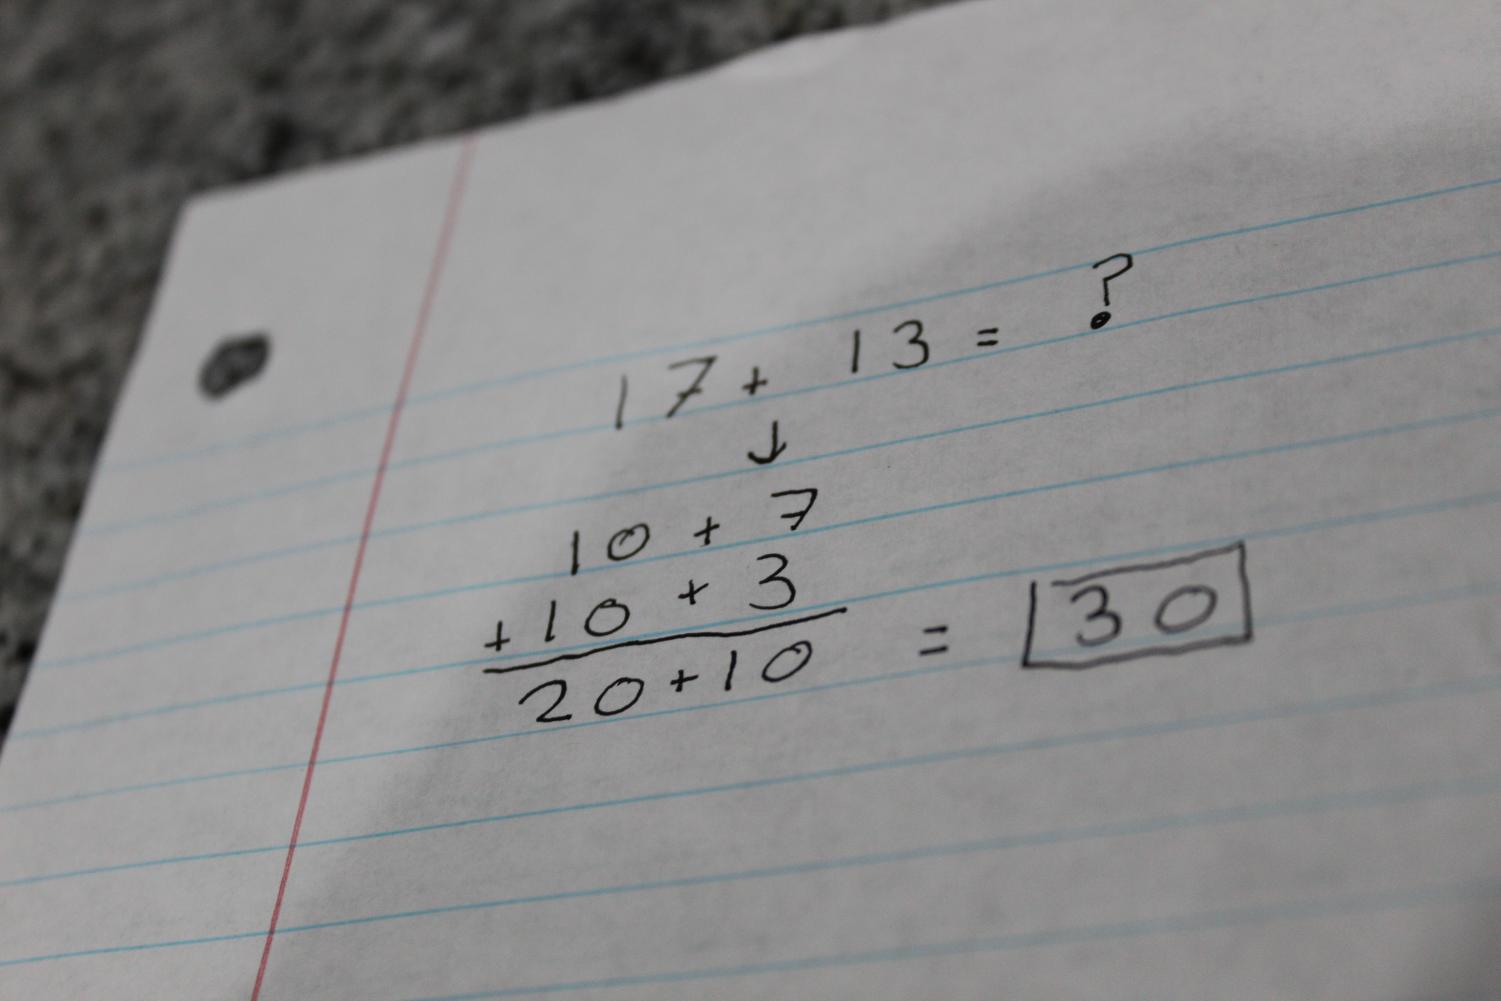 17 + 13 = ?
↓
10 + 7
+ 10 + 3
20 + 10 = 30